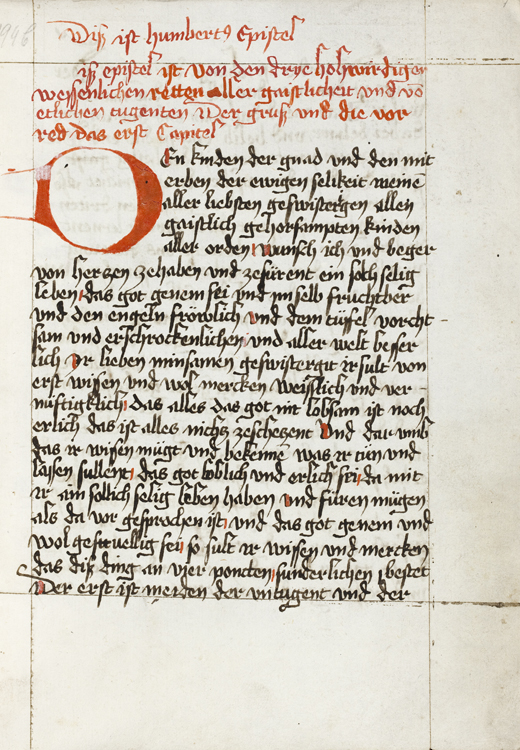 Diß ist humbertꝰ Epistel
iß epistel ist von den drye hohwirdigen
weyssenlichen retten aller gaistlicheit vnd vō
etlichen tugenten Der gruß vnd die vor
red das erst Capitel
DEn kinden der gnad vnd den mit
erben der ewigen selikeit meinē
aller liebsten geswistergen allen
gaistlich gehorsampten kinden
aller orden wunsch ich vnd beger
von herczen zehaben vnd zefürent ein solch selig
leben das got genem sei vnd im selb fruchtber
vnd den engeln frölich vnd dem tüfel vorcht
sam vnd erschrockenlichen vnd aller welt besser
lich Ir lieben minsamen geswistergit ir sult von
erst wissen vnd wol mercken weisslich vnd ver
nüftigklich das alles das got nit lobsam ist noch
erlich das ist alles nichs zeschetzent Vnd dar vmb
das ir wissen mügt vnd bekennē was ir tün vnd
lassen sullent das got loblich vnd erlich sei da mit
ir ain sollich selig leben haben vnd füren mügen
als da vor gesprochen ist vnd das got genem vnd
wol gefvellig sei so sult ir wissen vnd mercken
das diß ding an vier poncten sunderlichen bestet
Der erst ist meiden der vntugent vnd der